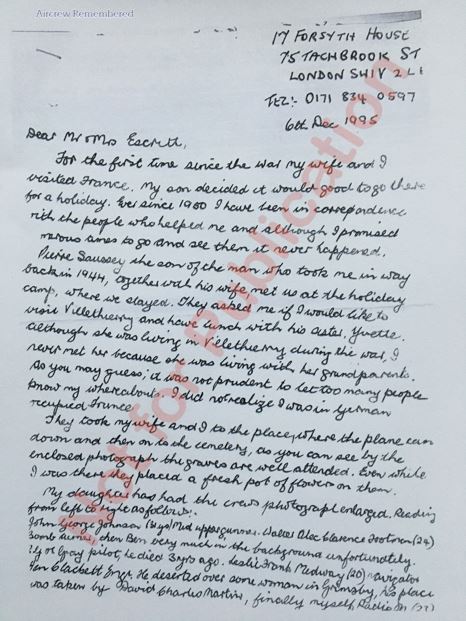 Aircrew Remembered
17 FORSYTH HOUSE
75 TACHBROOK ST
LONDON SW1V 2LE
TEL:- 0171 834 0597
6th Dec 1995
Dear Mr & Mrs Escrett,
For the first time since the war my wife and I
visited France. My son decided it would good to go there
for a holiday. Ever since 1980 I have been in correspondence
with the people who helped me and although I promised
times to go and see them it never happened.
Pierre Saussey the son of the man who took me in way
back in 1944, together with his wife met us at the holiday
camp, where we stayed. They asked me if I would like to
visit Villethierry and have lunch with his sister, Yvette.
Although she was living in Villethierry during the war, I
never met her because she was living with her grandparents.
As you may guess, it was not prudent to let too many people
know my whereabouts. I did not realize I was in German
occupied France.
They took my wife and I to the place, where the plane came
down and then on to the cemetery, as you can see by the
enclosed photograph the graves are well attended. Even while
I was there they placed a fresh pot of flowers on them.
My daughter has had the crews photograph enlarged. Reading
from left to right as follows:
John George Johnson Mid upper gunner. Walter Alec Clarence Trotman (24)
bomb aimer, then Ben very much in the background unfortunately.
Gray pilot, he died 3 yrs ago. Leslie Frank Medway (20) navigator
Clackett Engr. He deserted over some woman in Grimsby, his place
was taken by David Charles Martin, finally myself Radio
Not for Publication